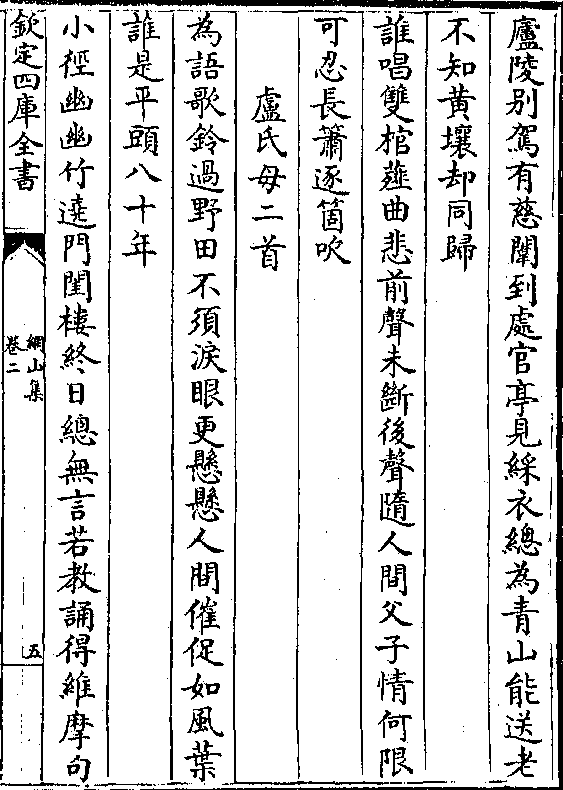 廬陵别駕有慈闈到處官亭見綵衣總為青山能送老
不知黄壤却同歸
誰唱雙棺薤曲悲前聲未斷後聲隨人間父子情何限
可忍長簫逐箇吹
盧氏母二首
為語歌鈴過野田不須淚眼更懸懸人間催促如風葉
誰是平頭八十年
小徑幽幽竹遶門閨棲終日總無言若教誦得維摩句
欽定四庫全書
網山集
卷二
五